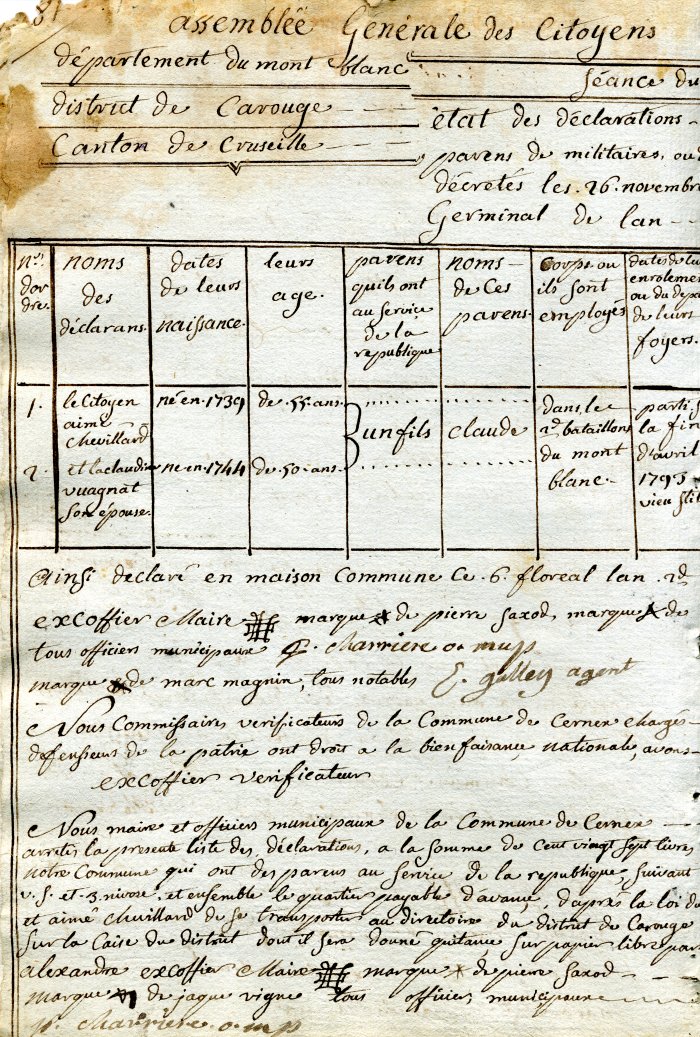 assemblée Générale des Citoyens
département du mont blanc
district de Carouge
Canton de Cruseille
séance du
état des déclarations
parens de militaires, ou d
décretés les 26 novembre
Germinal de lan
nos. dordre.
noms des déclarans.
dates de leurs naissance.
leurs age.
parens quils ont au service de la republique
noms de ces parens.
Corps ou ils sont employés
dates de leu enrolemen ou du depa de leurs foyers.
1.
le Citoyen aimé chevillard
né en 1739
de 55 ans
2.
et la claudi vuagnat son épouse.
né en 1744
de 50 ans
un fils
claude
dans le 2d bataillon du mont blanc.
parti la fin d'avril 1793 vieu stil
Ainsi declaré en maison Commune ce 6 floreal lan 2d
excoffier Maire marque de pierre saxod, marque de
tous officiers municipaux p. charriere o mup
marque de marc magnin, tous notables gallex agent
Nous Commissaires verificateurs de la Commune de Cernex chargés
defenseurs de la patrie ont droit a la bienfaisance nationale, avons
excoffier verificateur
Nous maire et officiers municipaux de la Commune de Cernex
arretés la presente liste des declarations, a la somme de Cent vingt sept livres
notre Commune qui ont des parens au service de la republique, suivant
v. s. et 3 nivose, et ensemble le quartier payable d'avance, d'après la loi du
et aimé chevillard de se transporter au directoire du district de Carouge
sur la Caise du district dont il sera donné quitance sur papier libre par
alexandre excoffier Maire marque de pierre saxod
marque de jaque vigne tous officiers municipaux
p. charriere o mp